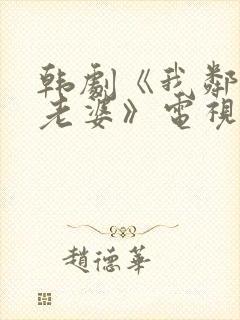 韩劇《我鄰
老婆》電視
趙德華